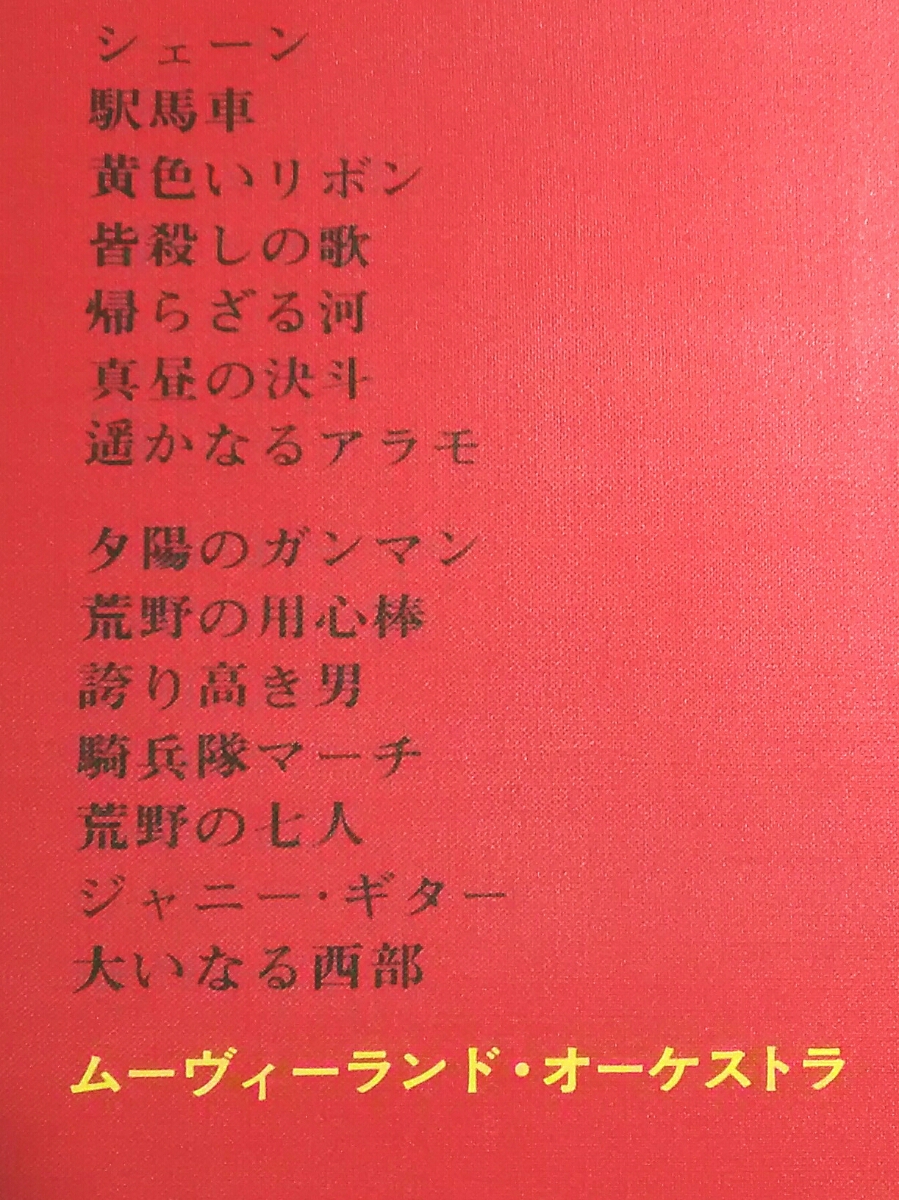 シェーン
駅馬車
黄色いリボン
皆殺しの歌
帰らざる河
真昼の決斗
遥かなるアラモ
夕陽のガンマン
荒野の用心棒
誇り高き男
騎兵隊マーチ
荒野の七人
ジャニー・ギター
大いなる西部
ムーヴィーランド・オーケストラ